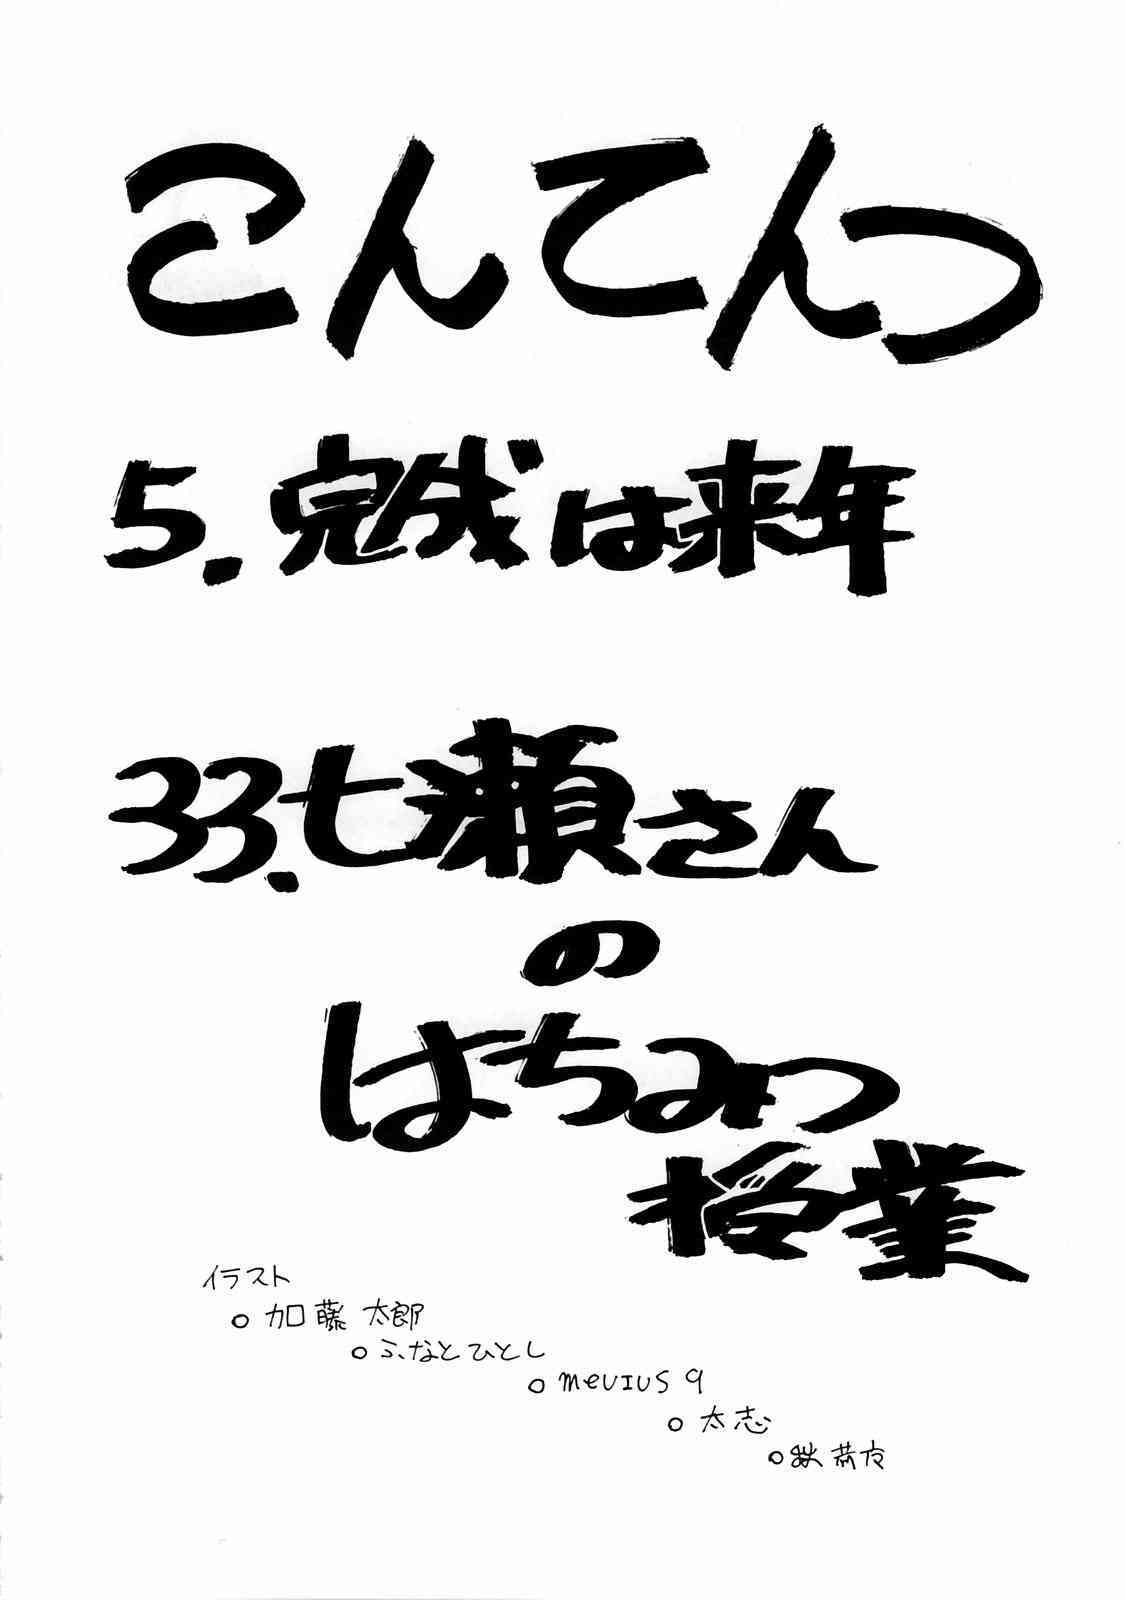 こんてんつ
5. 完成は来年
33. 七瀬さん
の
はちみつ
授業
イラスト
○ 加藤 太郎
○ ふなとひとし
○ mevius 9
○ 太志
○ 鉄 恭夜